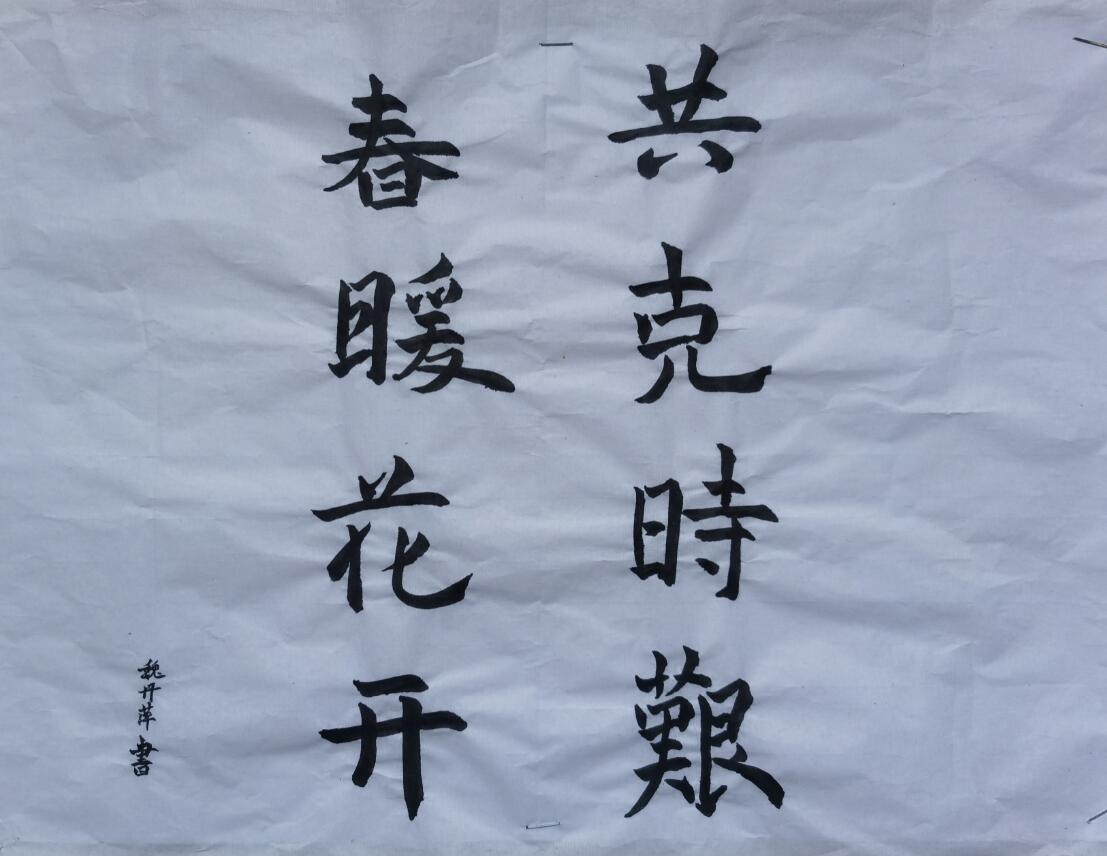 共克時艱
春暖花开
魏丹萍書